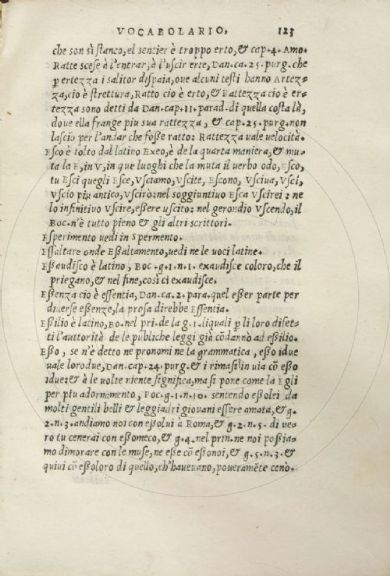 VOCABOLARIO. 123
che son sì stanco, el sentier è troppo erto, & cap. 4. Amo.
Ratte scese à l'entrar, à l'uscir erte, Dan. ca. 25. purg. che
per tezza i salitor dispaia, oue alcuni testi hanno Artez-
za, cio è strettura, Ratto cio è erto, & Rattezza cio è er-
tezza sono detti da Dan. cap. 11. parad. di quella costa là,
doue ella frange piu sua rattezza, & cap. 25. purg. non
lascio per l'andar che fosse ratto: Rattezza vale velocità.
Esco è tolto dal latino Exeo, è de la quarta maniera, & mu-
ta la E, in V, in que luoghi che la muta il uerbo odo, Esco,
tu Esci quegli Esce, Vsciamo, Vscite, Escono, Vsciua, Vscì,
Vscìo piu antico, Vscirò: nel soggiuntiuo Esca Vscirei: ne
lo infinitiuo Vscire, essere uscito: nel gerondio Vscendo, il
Boc. n'è tutto pieno & gli altri scrittori.
Esperimento uedi in Spermento.
Essaltare onde Essaltamento, uedi ne le uoci latine.
Essaudisco è latino, Boc. g. 1. n. 1. exaudisce coloro, che il
priegano, & nel fine, così ci exaudisce.
Essenza cio è essentia, Dan. ca. 2. para. quel esser parte per
diuerse essenze, la prosa direbbe Essentia.
Essilio è latino, Bo. nel pri. de la g. 1. liquali p li loro difet-
ti l'auttorità de le publiche leggi già cōdannò ad essilio.
Esso, se n'è detto ne pronomi ne la grammatica, esso idue
uale loro due, Dan. cap. 24. purg. & i rimasi in uia cō esso
idue: & à le uolte niente significa, ma si pone come la Egli
per piu adornamento, Boc. g. 1. n. 10. sentendo essolei da
molti gentili belli & leggiadri giouani essere amata, & g.
2. n. 3. andiamo noi con essolui à Roma, & g. 2. n. 5. di ue-
ro tu cenerai con essomeco, & g. 4. nel prin. ne noi possia-
mo dimorare con le muse, ne esse cō essonoi, & g. 5. n. 3. &
quiui cō essoloro di quello, ch'haueuano, poueramēte cenò.